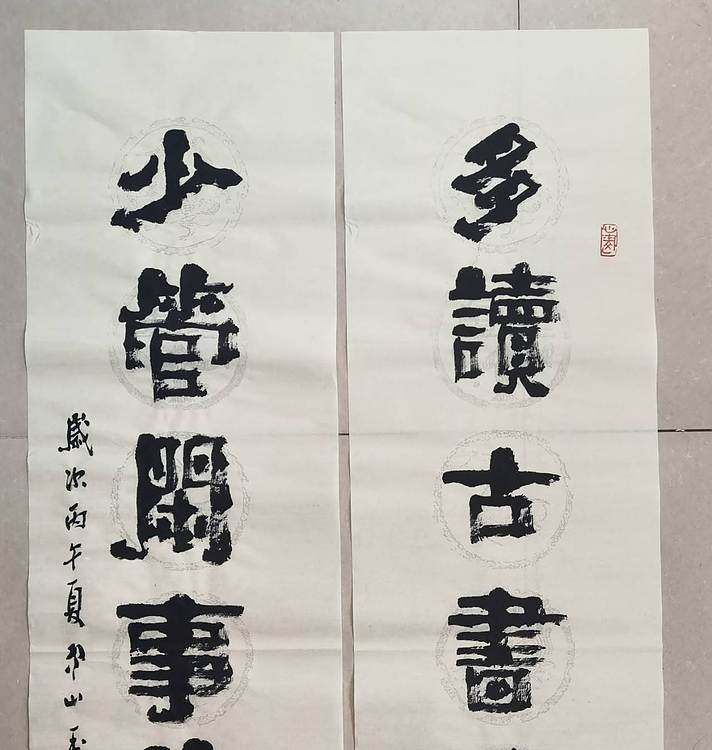 多讀古書
少管閒事
歲次丙午夏
山